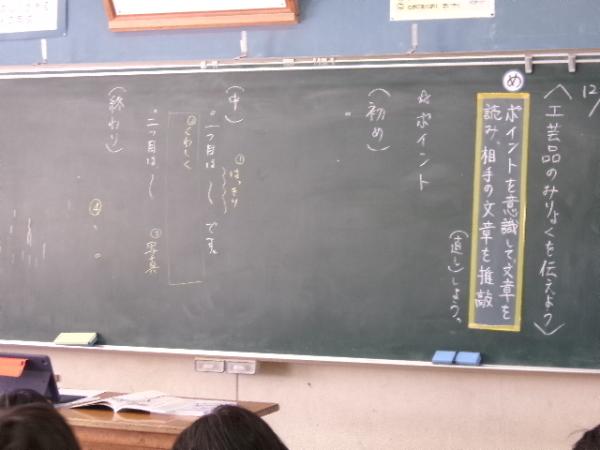 12/
〈工芸品のみりょくを伝えよう〉
め
ポイントを意識して、文章を
読み、相手の文章を推敲
(直し)しよう。
☆ポイント
(初め)
。
(中)
①はっきり
・一つ目は〜です。
②くわしく
・二つ目は〜
③写真
(終わり)
④、。